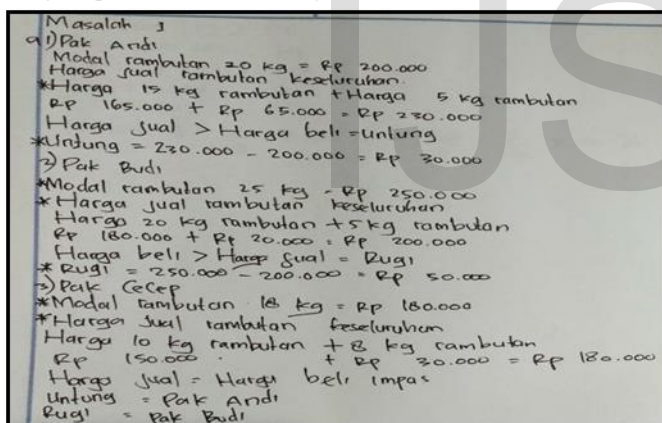 Masalah 1
a 1) Pak Andi
Modal rambutan 20 kg = Rp 200.000
Harga jual rambutan keseluruhan
*Harga 15 kg rambutan + Harga 5 kg rambutan
Rp 165.000 + Rp 65.000 = Rp 230.000
Harga jual > Harga beli = untung
*Untung = 230.000 - 200.000 = Rp 30.000
2) Pak Budi
*Modal rambutan 25 kg = Rp 250.000
*Harga jual rambutan keseluruhan
Harga 20 kg rambutan + 5 kg rambutan
Rp 180.000 + Rp 20.000 = Rp 200.000
Harga beli > Harga jual = Rugi
* Rugi = 250.000 - 200.000 = Rp 50.000
3) Pak Cecep
*Modal rambutan 18 kg = Rp 180.000
*Harga jual rambutan keseluruhan
Harga 10 kg rambutan + 8 kg rambutan
Rp 150.000 + Rp 30.000 = Rp 180.000
Harga jual = Harga beli impas
Untung = Pak Andi
Rugi = Pak Budi